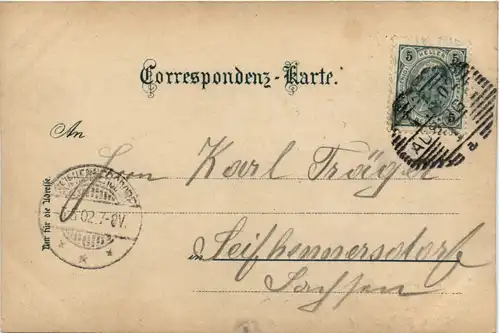 Correspondenz-Karte.
5 HELLER 5
An
Herrn Karl Träger
in Seifhennersdorf
Sachsen
Nur für die Adresse.
02. 7-8V.